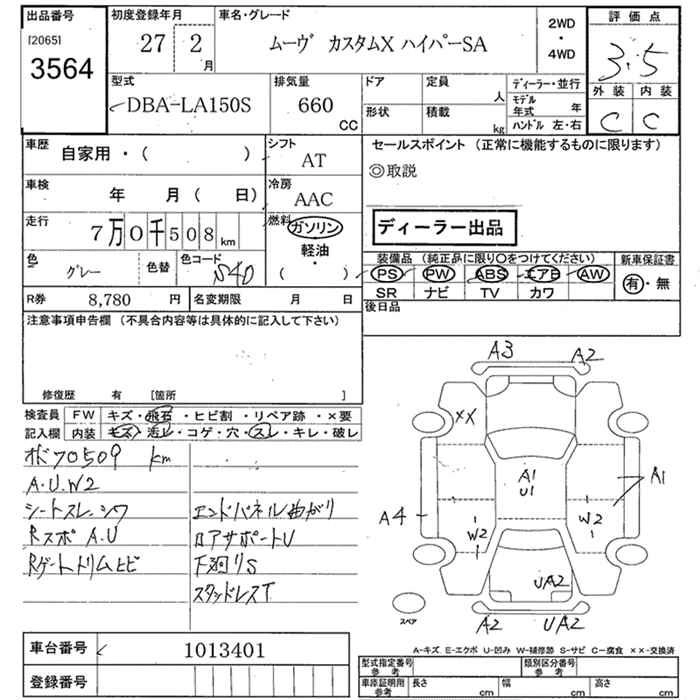 出品番号 初度登録年月 車名・グレード 2WD ・ 4WD 評価点
[2065] 3564 27 2 月 ムーヴ カスタムX ハイパーSA 3.5
型式 排気量 ドア 定員 人 ディーラー・並行 外装 内装
DBA-LA150S 660 CC 形状 積載 kg モデル年式 年 ハンドル 左・右 C C
車歴 自家用・( ) シフト AT セールスポイント (正常に機能するものに限ります)
◎取説
車検 年 月 ( 日) 冷房 AAC
走行 7万0千508km 燃料 ガソリン・軽油・( )
ディーラー出品
色 グレー 色替 色コード S40
装備品 (純正品に限り〇をつけてください) 新車保証書
PS PW ABS エアB AW 有・無
SR ナビ TV カワ
R券 8,780 円 名変期限 月 日
後日品
注意事項申告欄 (不具合内容等は具体的に記入して下さい)
修復歴 有 [箇所 ]
検査員 FW キズ・飛石・ヒビ割・リペア跡・×要
記入欄 内装 キズ・汚レ・コゲ・穴・スレ・キレ・破レ
メーター70509 km
A.U.W2
シートスレ、シワ エンドパネル曲がり
RスポA.U ロアサポートU
Rゲートトリムヒビ 下廻りS
スタッドレスT
A3 A2
XX
A1
U1
A1
A4
W2 W2
UA2
スペア A2 UA2
A-キズ E-エクボ U-凹み W-補修跡 S-サビ C-腐食 ××-交換済
車台番号 1013401
登録番号
型式指定番号 参考 類別区分番号 参考
車庫証明用 参考 長さ cm 幅 cm 高さ cm